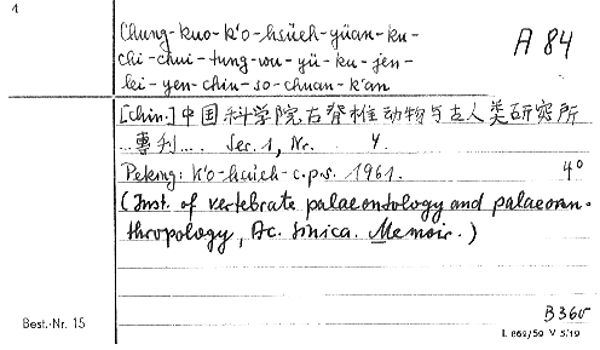 1
Chung-kuo-k'o-hsüeh-yüan-ku-
chi-chui-tung-wu-yü-ku-jen-
lei-yen-chiu-so-chuan-k'an
A 84
[chin.] 中国科学院古脊椎动物与古人类研究所
...專刊... Ser. 1, Nr. 4.
Peking: K'o-hsüeh-c.p.s. 1961. 4°
(Inst. of vertebrate palaeontology and palaeoan-
thropology, Ac. Sinica. Memoir.)
B 360
Best.-Nr. 15